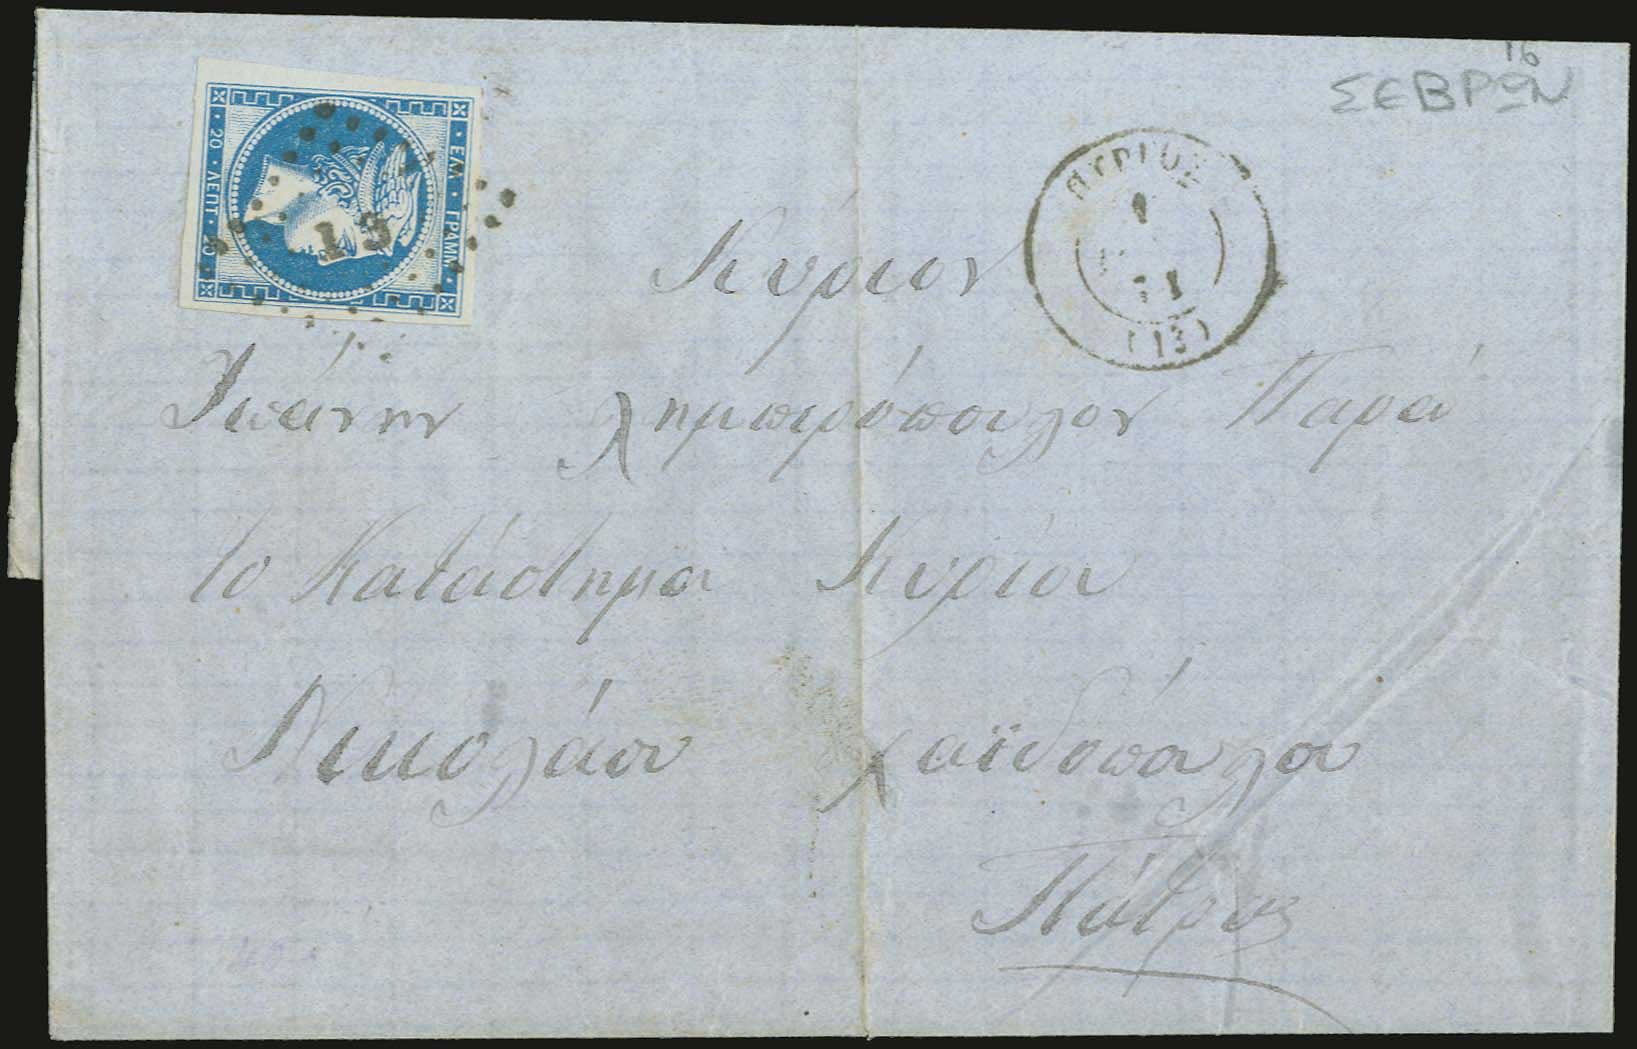 16
ΣΕΒΡΩΝ
ΕΛΛ · ΓΡΑΜΜ ·
20 · ΛΕΠΤ · 20
13
ΠΥΡΓΟΣ
1
71
(13)
Κύριον
Ἰωάννην Λημπερόπουλον Παρά
το Κατάστημα Κυρίου
Νικολάου Χαϊδοπούλου
Πάτρας